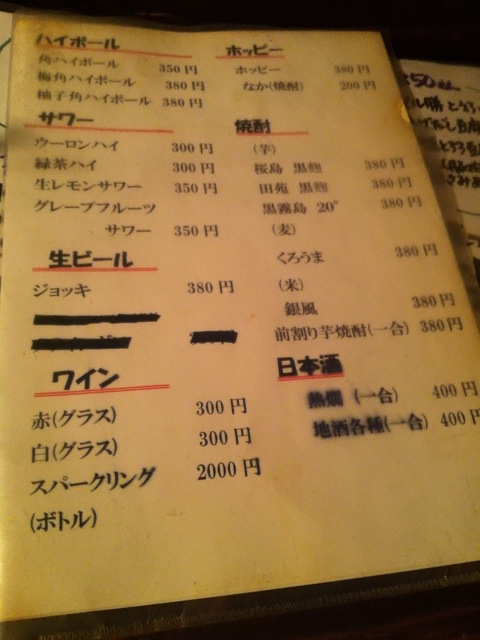 ハイボール
角ハイボール 350円
梅角ハイボール 380円
柚子角ハイボール 380円
サワー
ウーロンハイ 300円
緑茶ハイ 300円
生レモンサワー 350円
グレープフルーツ
サワー 350円
生ビール
ジョッキ 380円
ワイン
赤(グラス) 300円
白(グラス) 300円
スパークリング 2000円
(ボトル)
ホッピー
ホッピー 380円
なか(焼酎) 200円
焼酎
(芋)
桜島 黒麹 380円
田苑 黒麹 380円
黒霧島 20° 380円
(麦)
くろうま 380円
(米)
銀風 380円
前割り芋焼酎(一合) 380円
日本酒
熱燗 (一合) 400円
地酒各種(一合) 400円